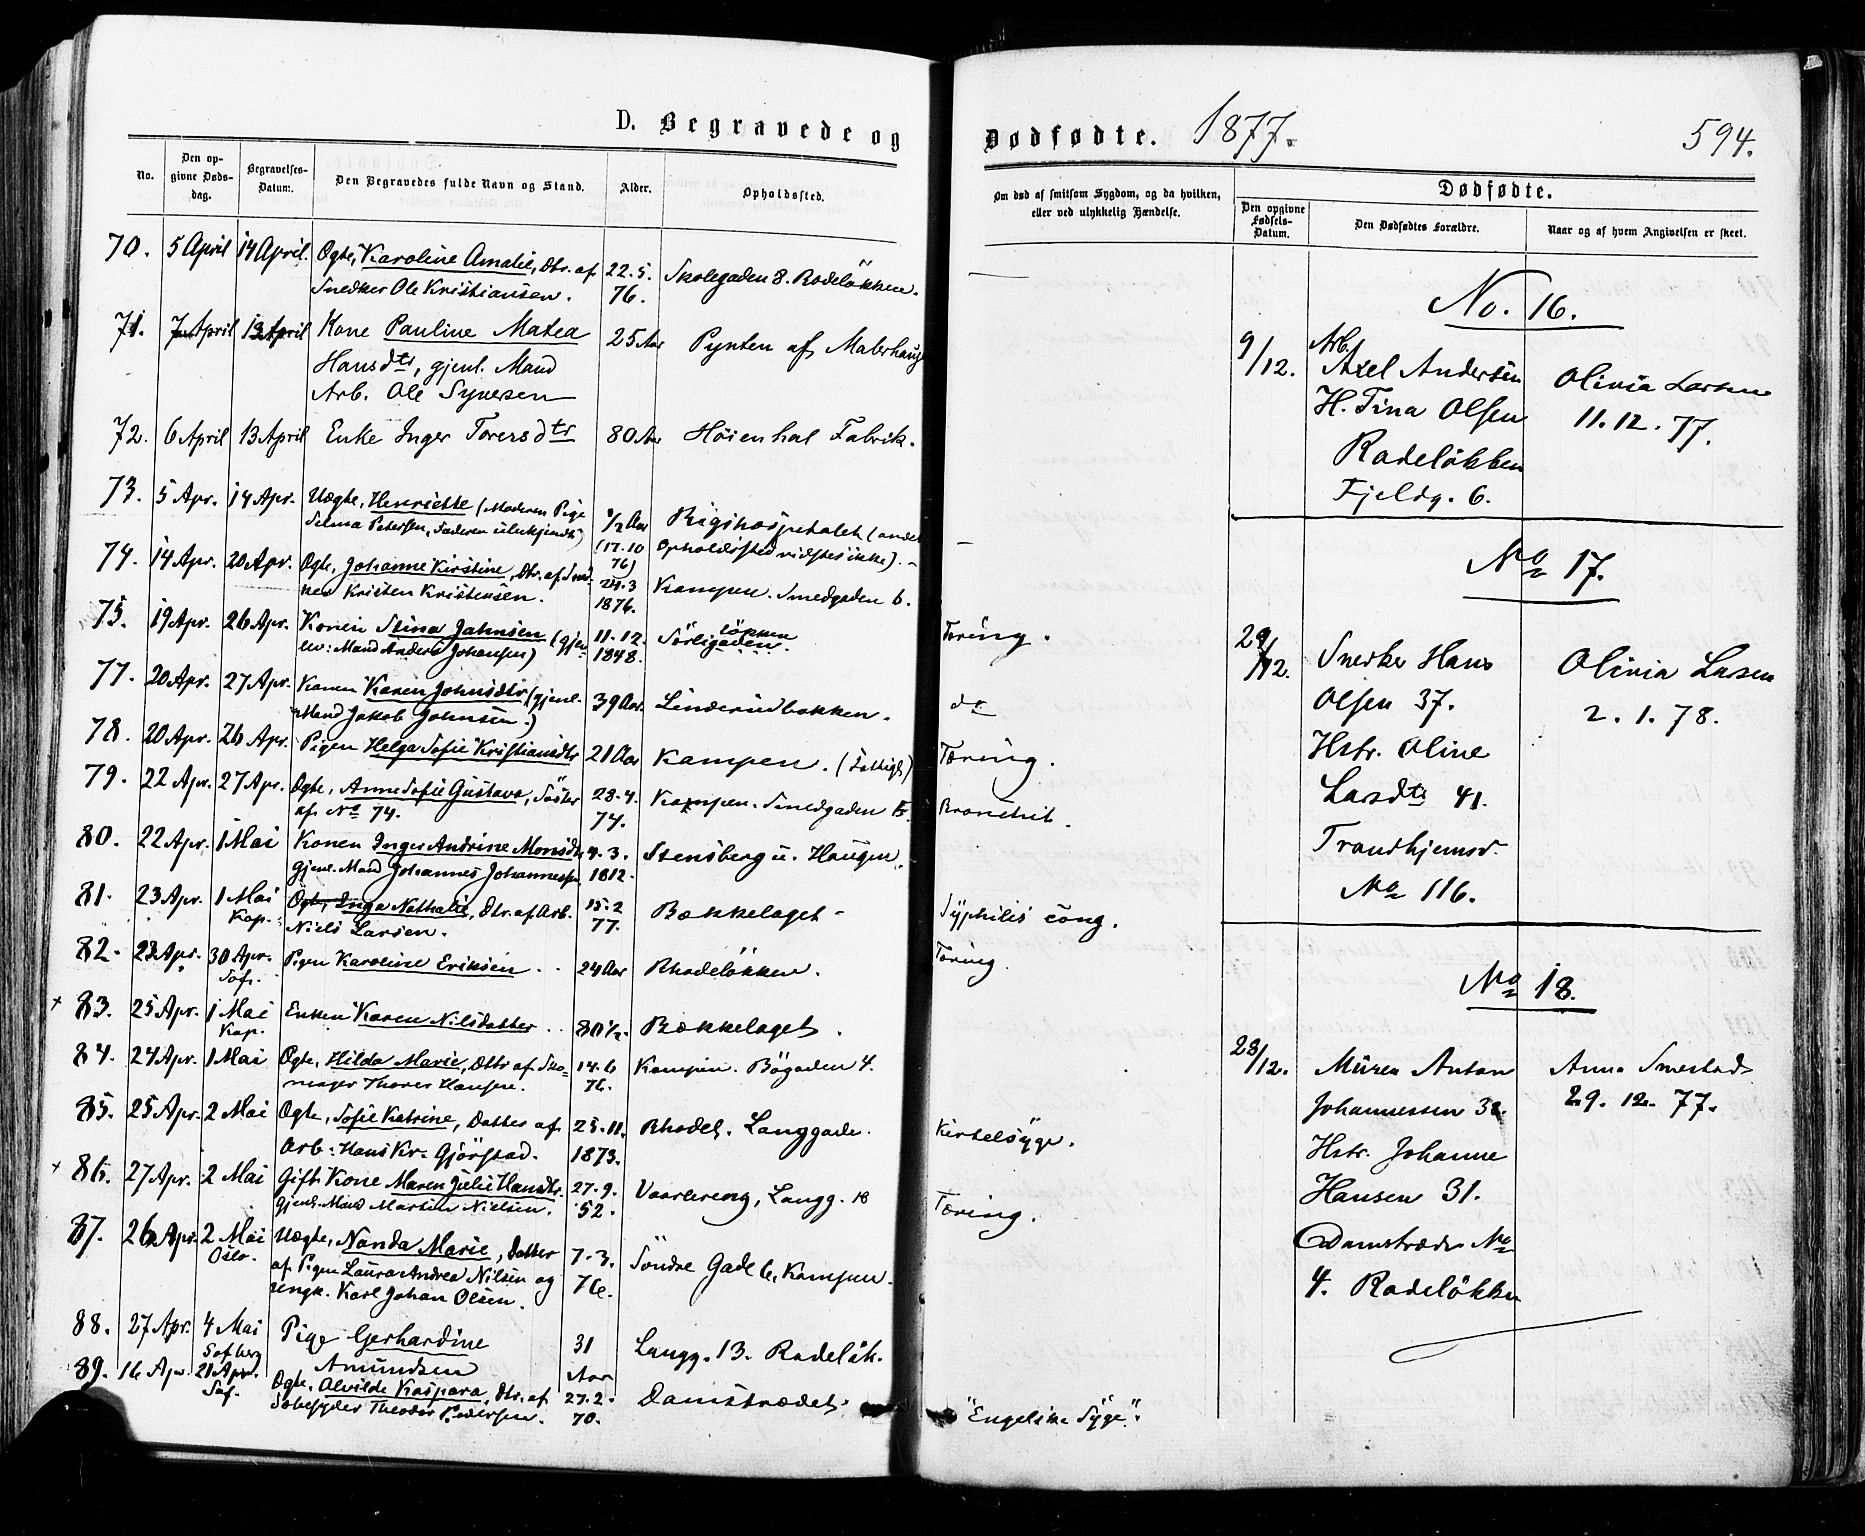 D. Begravede og
Dødfødte. 1877.
594.
No.
Den opgivne Dødsdag.
Begravelses-Datum.
Den Begravedes fulde Navn og Stand.
Alder.
Opholdssted.
Om død af smitsom Sygdom, og da hvilken,
eller ved ulykkelig Hændelse.
Dødfødte.
Den opgivne Fødsels-Datum.
Den Dødfødtes Forældre.
Naar og af hvem Angivelsen er skeet.
70. 5 April 14 April. Ægte, Karoline Amalie, Dtr. af 22.5. Skolegaden 8. Rodeløkken.
Snedker Ole Kristiansen. 76.
71. 7 April 13 April Kone Pauline Matea 25 Aar Pynten af Malerhaug
Hansdtr, gjenl. Mand
Arb. Ole Syversen
72. 6 April 13 April Enke Inger Toresdtr 80 Aar Høienhal Fabrik.
73. 5 Apr. 14 Apr. Uægte, Henriette (Moderen Pige ½ Aar Rigshospitalet (andet
Selma Petersen, Faderen ubekjendt) (17.10 Opholdssted vidstes ikke). -
76)
74. 14 Apr. 20 Apr. Ægte, Johanne Kirstine, Dtr. af Sned- 24.3 Kampen. Smedgaden 6.
ker Kristen Kristensen. 1876.
75. 19 Apr. 26 Apr. Konen Stina Jahnsen (gjen 11.12. Sörligaden. løkken Tæring.
lev: Mand Anders Johansen) 1848.
77. 20 Apr. 27 Apr. Konen Karen Johnsdtr (gjenl. 39 Aar. Linderudbakken. do
Mand Jakob Johnsen.)
78. 20 Apr. 26 Apr. Pigen Helga Sofie Kristiansdtr 21 Aar Kampen. (Fattigl) Tæring.
79. 22 Apr. 27 Apr. Ægte, Anne Sofie Gustava, Søster 28.4. Kampen. Smedgaden 6. Bronchit.
af No 74. 74.
80. 22 Apr. 1 Mai Konen Inger Andrine Monsdtr 4.3. Stensberg u. Haugen.
gjenl. Mand Johannes Johannessen 1812.
81. 23 Apr. 1 Mai Ægte, Inga Nathalie, Dtr. af Arb. 15.2 Bækkelaget - Syphilis cong.
Kap. Niels Larsen. 77.
82. 23 Apr. 30 Apr. Pigen Karoline Eriksen.. 24 Aar Rhodeløkken. Tæring.
Sof.
+ 83. 25 Apr. 1 Mai Enken Karen Nilsdatter.. 80½. Bækkelaget.
Kap.
84. 24 Apr. 1 Mai Ægte, Hilda Marie, Dttr af Sko- 14.6 Kampen. Bøgaden 4.
mager Thorer Hansen. 76.
85. 25 Apr. 2 Mai Ægte, Sofie Katrine, Datter af 25.11. Rhodel. Langgade. Kirtelsyge.
Arb: Hans Kr. Gjörstad. 1873.
+ 86. 27 Apr. 2 Mai Gift Kone Maren Julie Hansdtr. 27.9. Vaalereng, Langg. 18 Tæring.
gjenl. Mand Martin Nielsen. 52.
87. 26 Apr. 2 Mai Uægte, Nanda Marie, Datter 7.3. Söndre Gade 6, Kampen.
Oslo. af Pigen Laura Andrea Nilsen og 76.
ungk. Karl Johan Olsen.
88. 27 Apr. 4 Mai Pige Gerhardine 31 Langg. 13. Rodeløk.
Sofberg Amundsen Aar
89. 16 Apr. 21 Apr. Ægte, Alvilde Kaspara, Dtr. af 27.2. Damstrædet. "Engelske Syge".
Sof. Theodor Pedersen. 70.
No. 16.
9/12. Arb.
Axel Andersen Olivia Larsen
H. Tina Olsen 11.12.77.
Rodeløkken
Fjeldg. 6.
No 17.
29/12. Snedker Hans Olivia Larsen
Olsen 37. 2.1.78.
Hstr. Oline
Larsdtr 41.
Trondhjemsv.
No 116.
No 18.
28/12. Murer Anton Anna Smestad
Johannessen 32. 29.12.77.
Hstr. Johanne
Hansen 31.
Damstrædet No
4. Rodeløkken